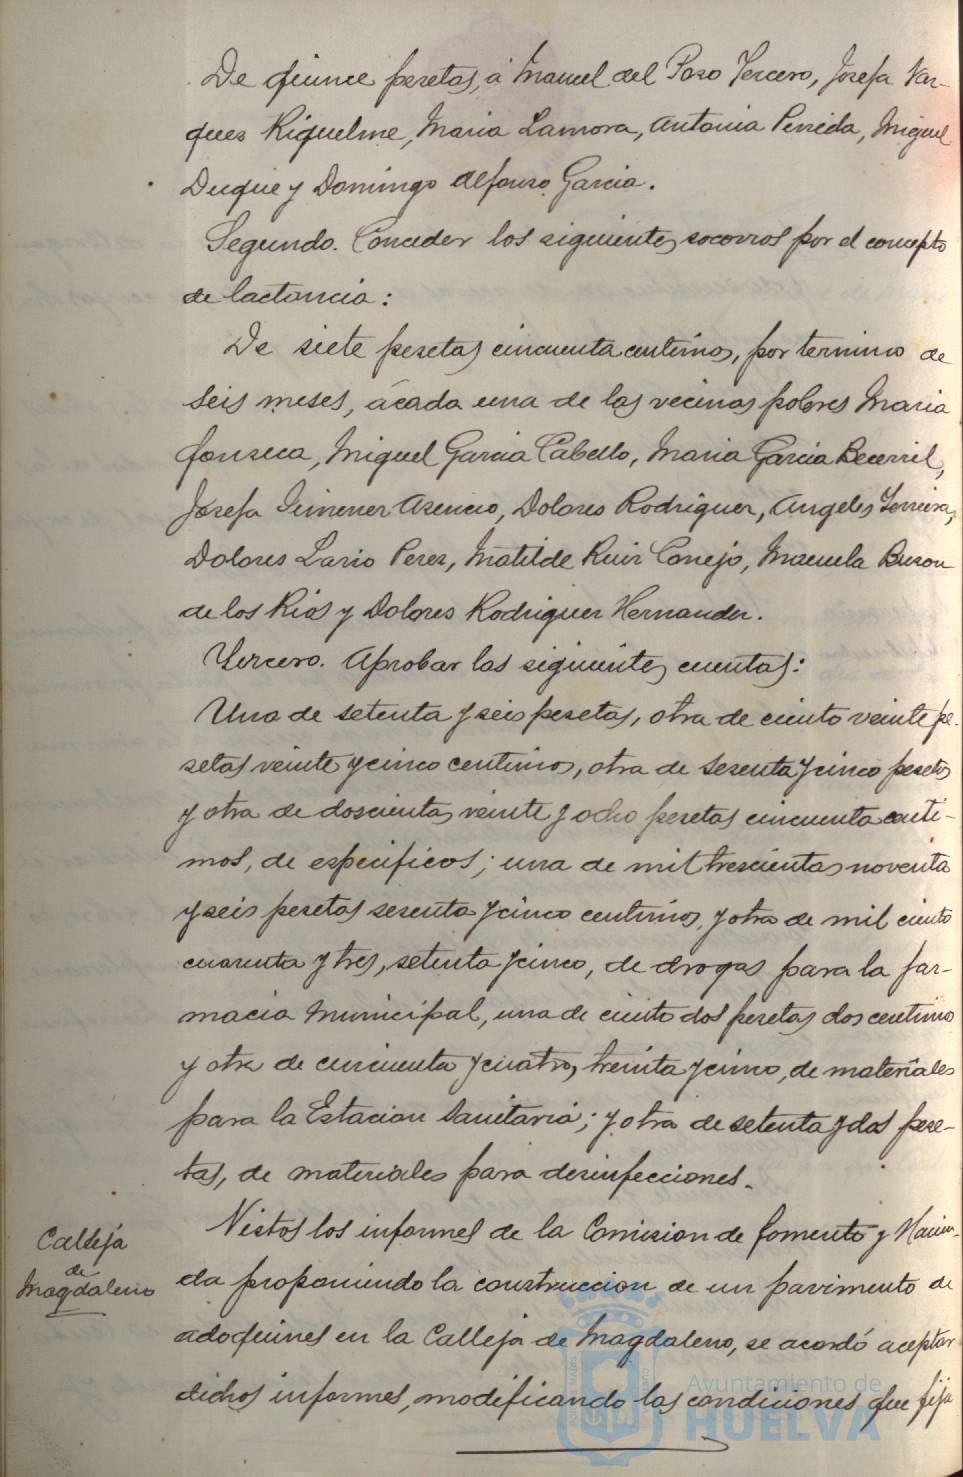 De quince pesetas, á Manuel del Pozo Tercero, Josefa Var-
ques Riquelme, Maria Zamora, Antonia Pereida, Miguel
Duque y Domingo Alfonso Garcia.
Segundo. Conceder los siguientes socorros por el concepto
de lactancia:
De siete pesetas cincuenta centimos, por termino de
seis meses, á cada una de las vecinas pobres Maria
Fonseca, Miguel Garcia Cabello, Maria Garcia Becerril,
Josefa Gimenez Asencio, Dolores Rodriguez, Angeles Ferreira,
Dolores Lario Perez, Matilde Ruiz Conejo, Manuela Buzon
de los Rios y Dolores Rodriguez Hernandez.
Tercero. Aprobar las siguientes cuentas:
Una de setenta y seis pesetas, otra de ciento veinte pe-
setas veinte y cinco centimos, otra de sesenta y cinco pesetas
y otra de doscientas veinte y ocho pesetas cincuenta centi-
mos, de especificos; una de mil trescientas noventa
y seis pesetas sesenta y cinco centimos, y otra de mil ciento
cuarenta y tres, setenta y cinco, de drogas para la far-
macia Municipal, una de ciento dos pesetas dos centimos
y otra de cincuenta y cuatro, treinta y cinco, de materiales
para la Estacion Sanitaria; y otra de setenta y dos pese-
tas, de materiales para desinfecciones.
Calleja
de
Magdaleno
Vistos los informes de la Comision de Fomento y Hacien-
da proponiendo la construccion de un pavimento de
adoquines en la Calleja de Magdaleno, se acordó aceptar
dichos informes, modificando las condiciones que fija
Ayuntamiento de
HUELVA